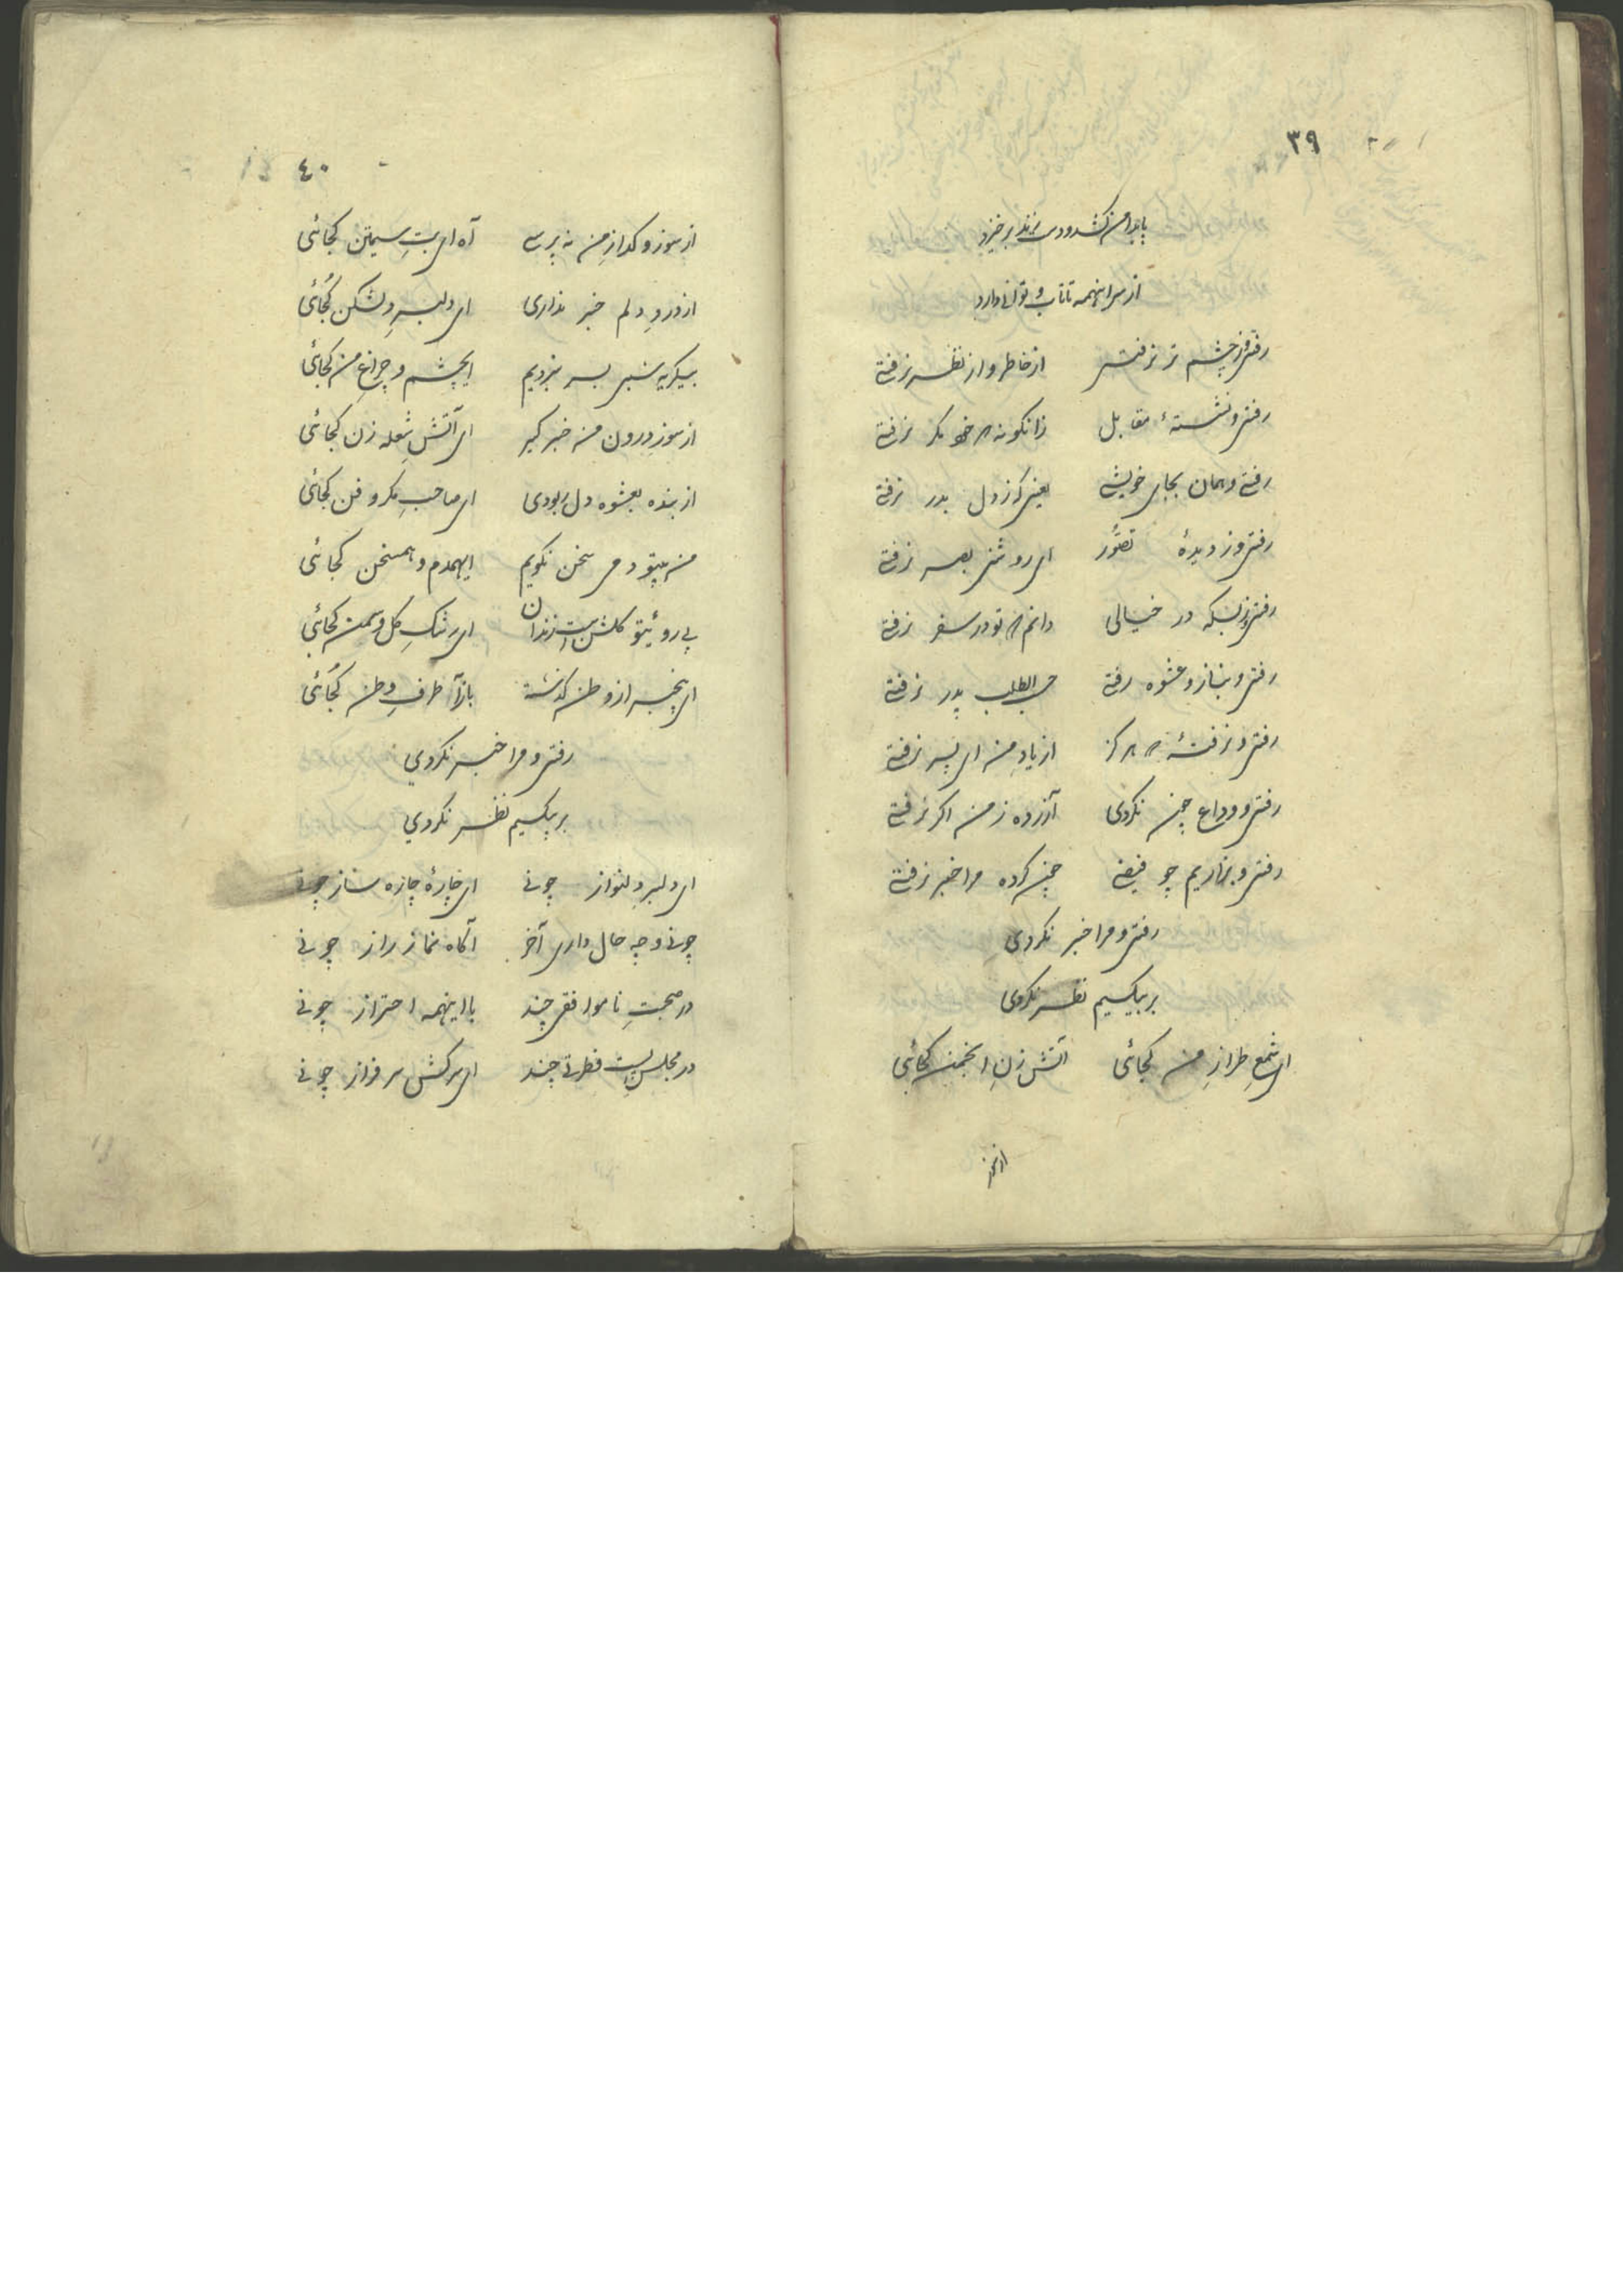 ۳۹
پا بدامن کشد و دست برخیزد
از سر اینهمه تا تاب و توانی دارد
رفتی و ز چشم تر نرفتی از خاطر و از نظر نرفتی
رفتی و نشستهٔ مقابل زانگونه که خود مگر نرفتی
رفتی و همان بجای خویشی یعنی که ز دل بدر نرفتی
رفتی و ز دیدهٔ تصوّر ای روشنی بصر نرفتی
رفتی و ز بسکه در خیالی دانم که تو در سفر نرفتی
رفتی و بناز و عشوه رفتی حسب الطلب پدر نرفتی
رفتی و نرفتهٔ که هرگز از یادِ من ای پسر نرفتی
رفتی و وداع چون نکردی آزرده ز من اگر نرفتی
رفتی و بزاریم چو فیضی چون کرده مرا خبر نرفتی
رفتی و مرا خبر نکردی
بر بیکسیم نظر نکردی
ای شمعِ طرازِ من کجائی آتش زنِ انجمن کجائی
از سوز
٤٠
از سوز و گدازِ من نه پرسی آه ای بتِ سیمتن کجائی
از دردِ دلم خبر نداری ای دلبرِ دلشکن کُجائی
بیگریه شبی بسر نبردیم ایچشم و چراغِ من کجائی
از سوزِ درون من خبر گیر ای آتشِ شعله زن کجائی
از بنده بعشوه دل ربودی ای صاحبِ مکر و فن کجائی
من بیتو دمی سخن نگویم ایهمدم و همسخن کجائی
بی روئیتو گلشن است زندان ای رشکِ گل و سمن کجائی
ای بیخبر از وطن گذشته باز آ طرفِ وطن کُجائی
رفتی و مرا خبر نکردی
بر بیکسیم نظر نکردی
ای دلبر دلنواز چونی ای چارهٔ چاره ساز چونی
چونی و چه حال داری آخر آگاه نماز راز چونی
در صحبتِ ناموافقی چند با اینهمه احتراز چونی
در مجلسِ پست فطرتی چند ای سرکش سرفراز چونی